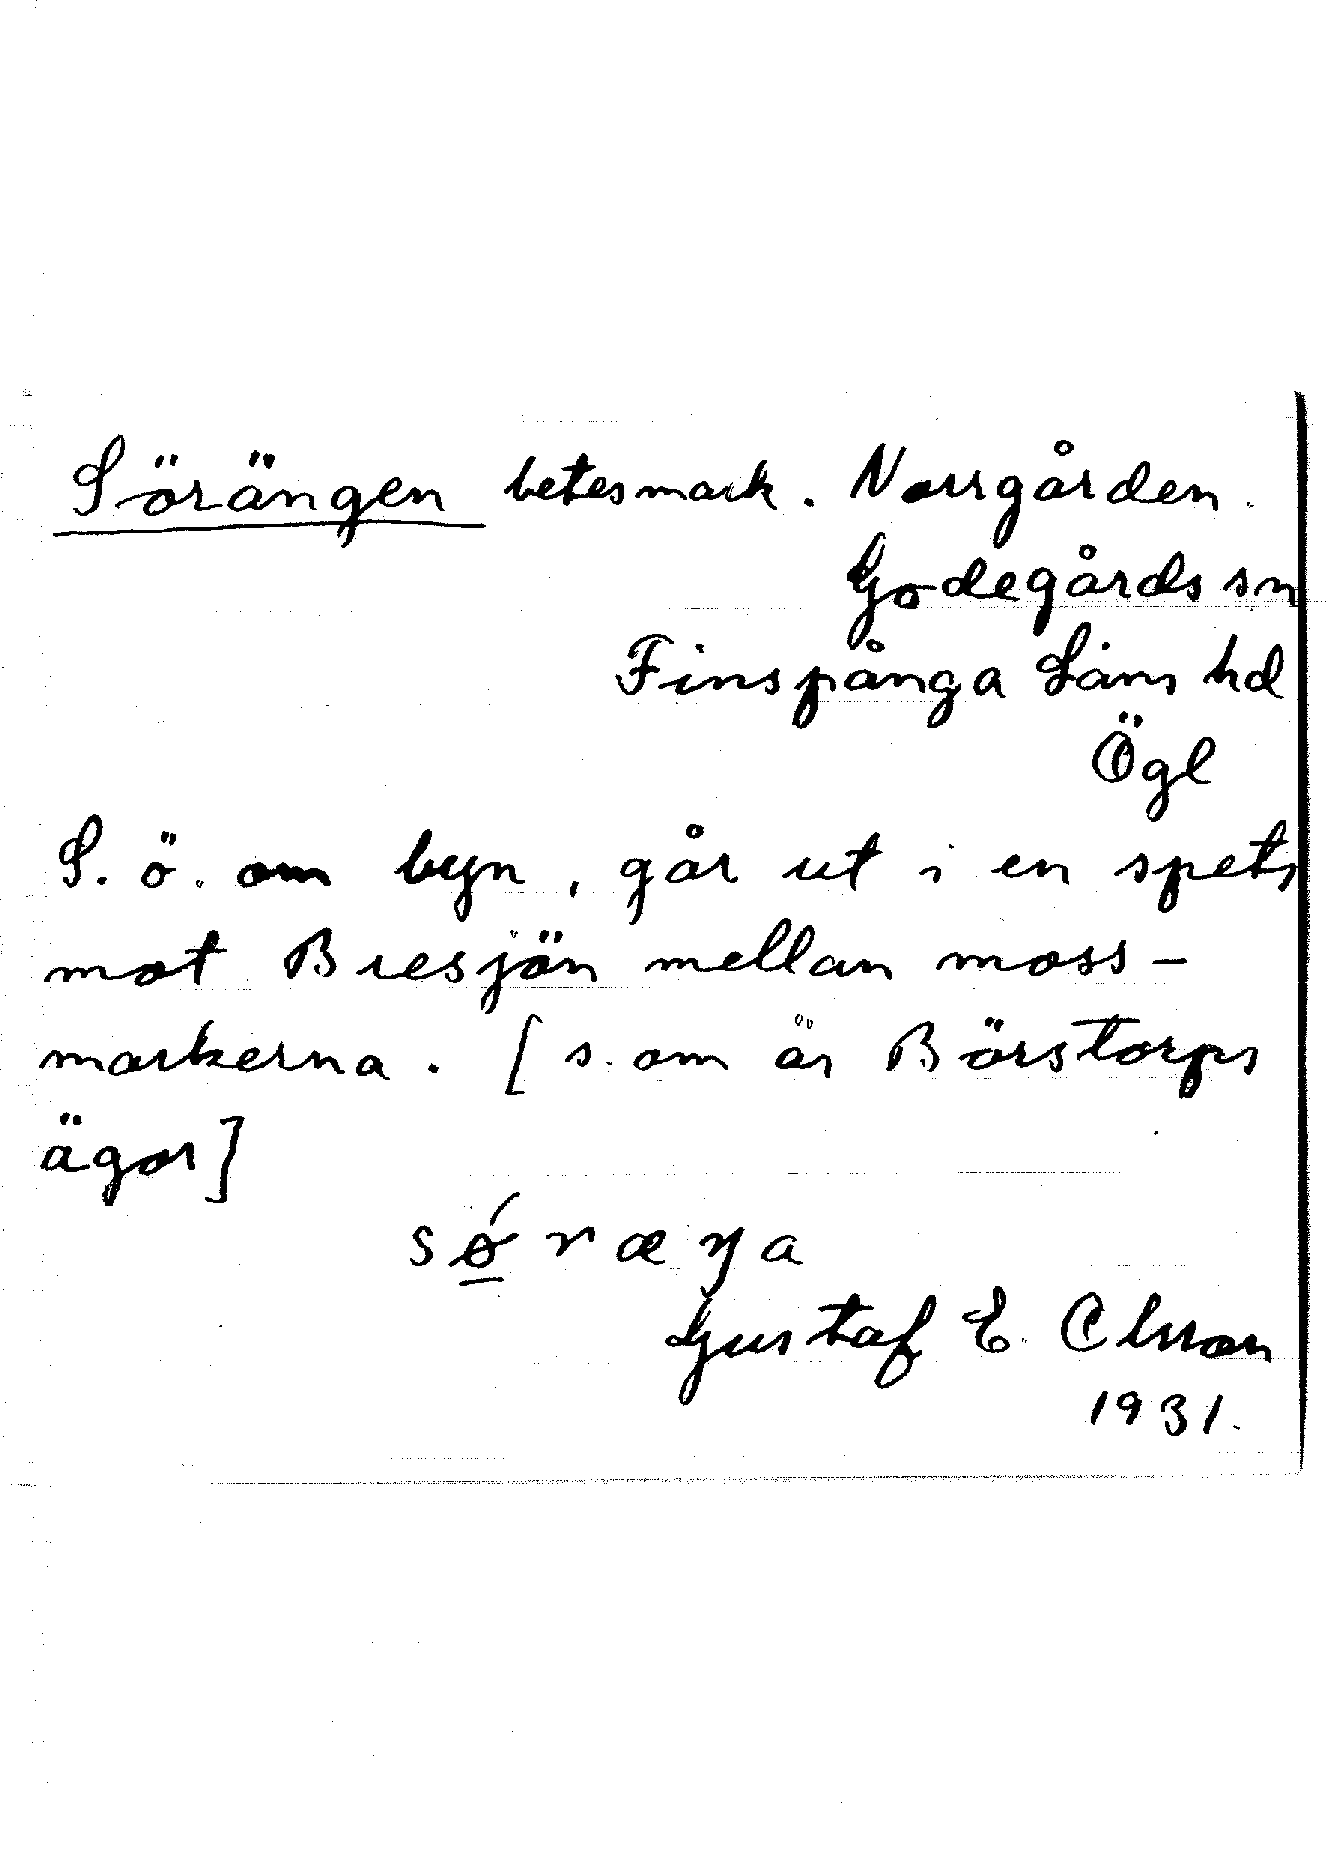 Sörängen betesmark. Norrgården.
Godegårds sn
Finspånga Läns hd
Ögl
S. ö. om byn, går ut i en spets
mot Bresjön mellan moss-
markerna. [som är Börstorps
ägor]
sǿ̲ræŋa
Gustaf E.
1931.